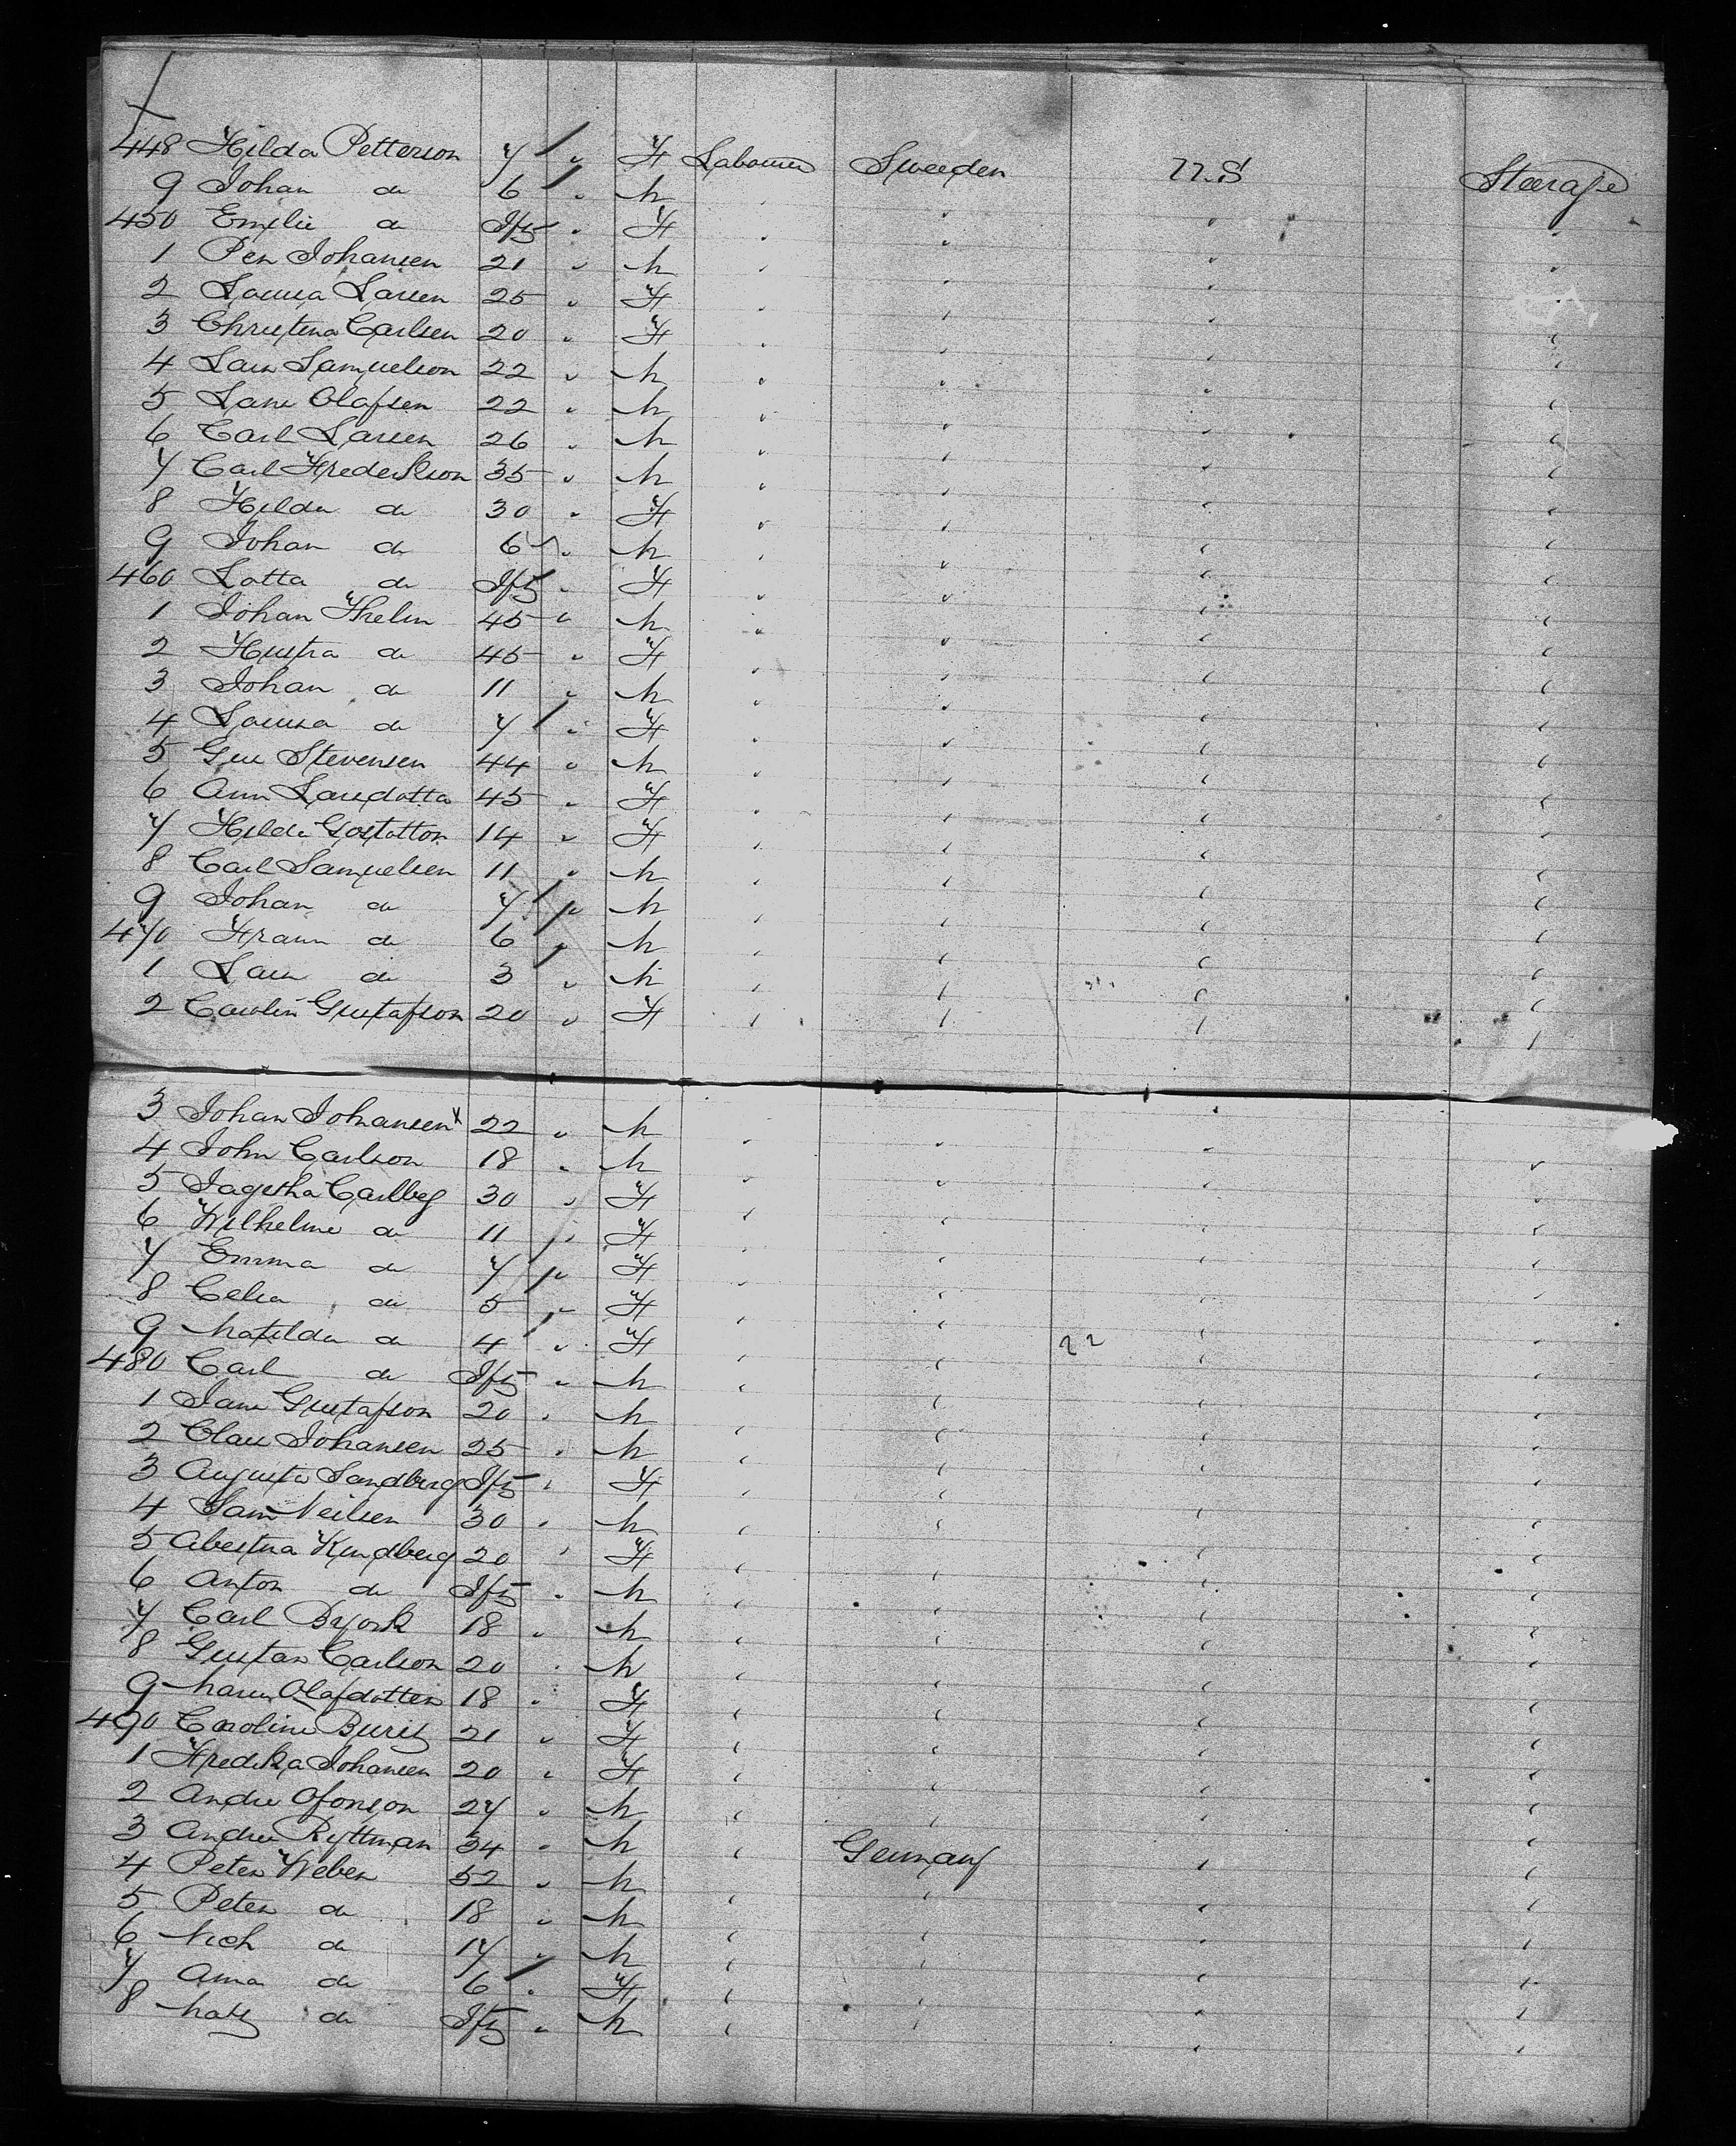 448 Hilda Petterson 7 " F Labourer Sweeden U.S Steerage
9 Johan do 6 " M " " " "
450 Emelie do Inft " F " " " "
1 Per Johansen 21 " M " " " "
2 Louisa Larsen 25 " F " " " "
3 Christena Carlsen 20 " F " " " "
4 Lars Samuelson 22 " M " " " "
5 Lars Olafsen 22 " M " " " "
6 Carl Larsen 26 " M " " " "
7 Carl Frederikson 35 " M " " " "
8 Hilda do 30 " F " " " "
9 Johan do 6 " M " " " "
460 Lotta do Inft " F " " " "
1 Johan Thelin 45 " M " " " "
2 Hustra do 45 " F " " " "
3 Johan do 11 " M " " " "
4 Louisa do 7 " F " " " "
5 Gus Stevensen 44 " M " " " "
6 Ann Larsdotta 45 " F " " " "
7 Hilda 14 " F " " " "
8 Carl Samuelsen 11 " M " " " "
9 Johan do 7 " M " " " "
470 Frans do 6 " M " " " "
1 Lars do 3 " M " " " "
2 Carolin Gustafson 20 " F " " " "
3 Johan Johansen x 22 " M " " " "
4 John Carlson 18 " M " " " "
5 Carlberg 30 " F " " " "
6 Wilhelme do 11 " F " " " "
7 Emma do 7 " F " " " "
8 Celia do 5 " F " " " "
9 Matilda do 4 " F " " 22 " "
480 Carl do Inft " M " " " "
1 Jans Gustafson 20 " M " " " "
2 Claus Johansen 25 " M " " " "
3 Augusta Sandberg Inft " F " " " "
4 Sam Neilsen 30 " M " " " "
5 Kindberg 20 " F " " " "
6 Anton do Inft " M " " " "
7 Carl Bjork 18 " M " " " "
8 Gustav Carlson 20 " M " " " "
9 Maria Olafdotter 18 " F " " " "
490 Caroline 21 " F " " " "
1 Fredrika Johansen 20 " F " " " "
2 Andre 27 " M " " " "
3 Andrew Ryttman 34 " M " Germany " "
4 Peter Weber 52 " M " " " "
5 Peter do 18 " M " " " "
6 Nich do 17 " M " " " "
7 Anna do 6 " F " " " "
8 Math do Inft " M " " " "